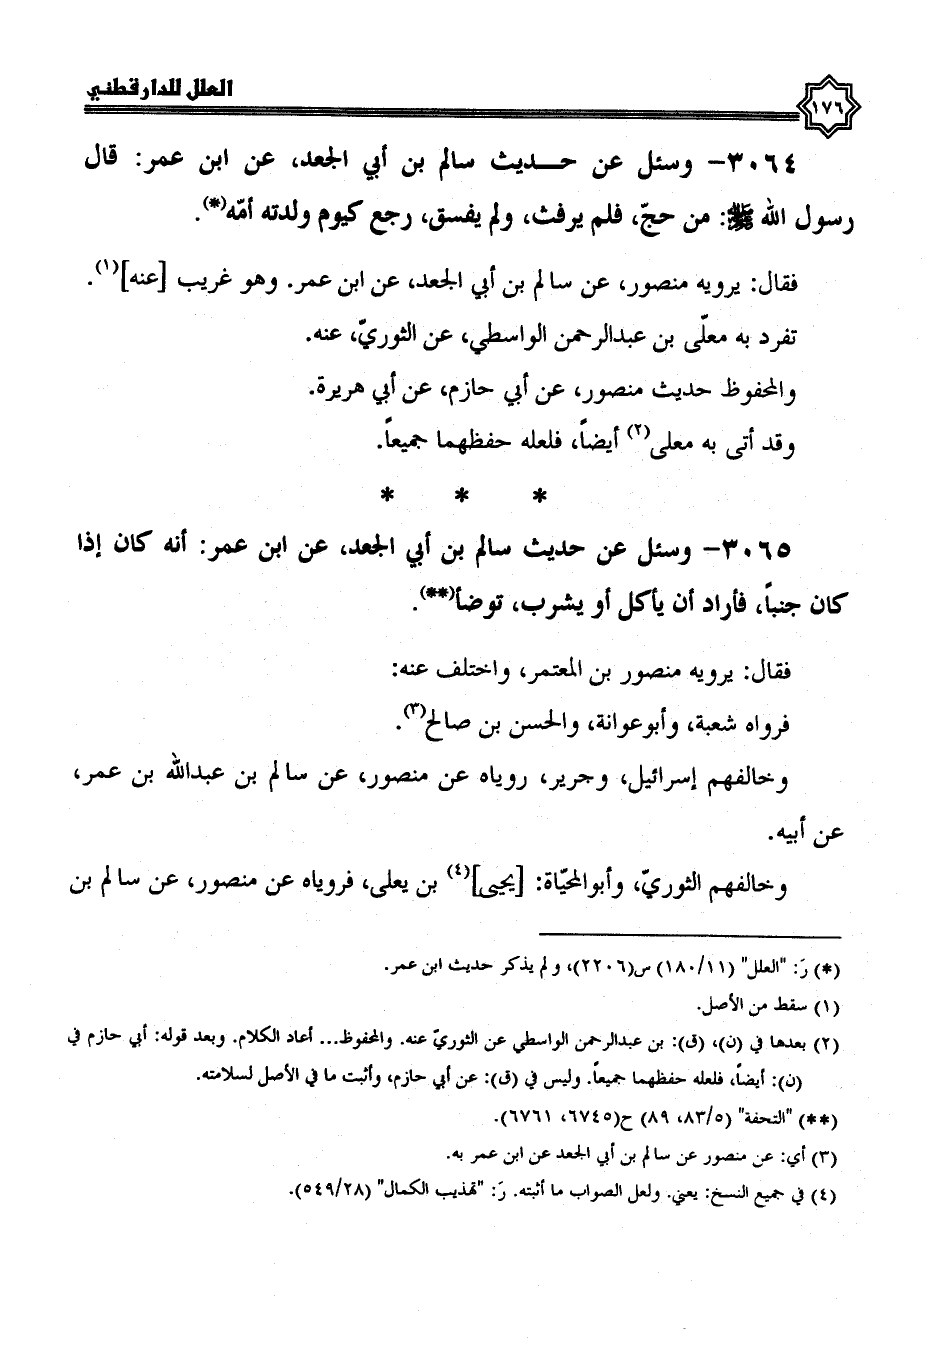 العلل للدارقطني
١٧٦
٣٠٦٤- وسئل عن حـــديث سالم بن أبي الجعد، عن ابن عمر: قال
رسول الله ﷺ: من حجّ، فلم يرفث، ولم يفسق، رجع كيوم ولدته أمّه(*).
فقال: يرويه منصور، عن سالم بن أبي الجعد، عن ابن عمر. وهو غريب [عنه](١).
تفرد به معلّى بن عبدالرحمن الواسطي، عن الثوريّ، عنه.
والمحفوظ حديث منصور، عن أبي حازم، عن أبي هريرة.
وقد أتى به معلى(٢) أيضاً، فلعله حفظهما جميعاً.
* * *
٣٠٦٥- وسئل عن حديث سالم بن أبي الجعد، عن ابن عمر: أنه كان إذا
كان جنباً، فأراد أن يأكل أو يشرب، توضأ(**).
فقال: يرويه منصور بن المعتمر، واختلف عنه:
فرواه شعبة، وأبوعوانة، والحسن بن صالح(٣).
وخالفهم إسرائيل، وجرير، روياه عن منصور، عن سالم بن عبدالله بن عمر،
عن أبيه.
وخالفهم الثوريّ، وأبوالمحيّاة: [يحيى](٤) بن يعلى، فروياه عن منصور، عن سالم بن
(*) رَ: "العلل" (١٨٠/١١) س(٢٢٠٦)، ولم يذكر حديث ابن عمر.
(١) سقط من الأصل.
(٢) بعدها في (ن)، (ق): بن عبدالرحمن الواسطي عن الثوريّ عنه. والمحفوظ... أعاد الكلام. وبعد قوله: أبي حازم في
(ن): أيضاً، فلعله حفظهما جميعاً. وليس في (ق): عن أبي حازم، وأثبت ما في الأصل لسلامته.
(**) "التحفة" (٨٣/٥، ٨٩) ح(٦٧٤٥، ٦٧٦١).
(٣) أي: عن منصور عن سالم بن أبي الجعد عن ابن عمر به.
(٤) في جميع النسخ: يعني. ولعل الصواب ما أثبته. رَ: "تهذيب الكمال" (٥٤٩/٢٨).